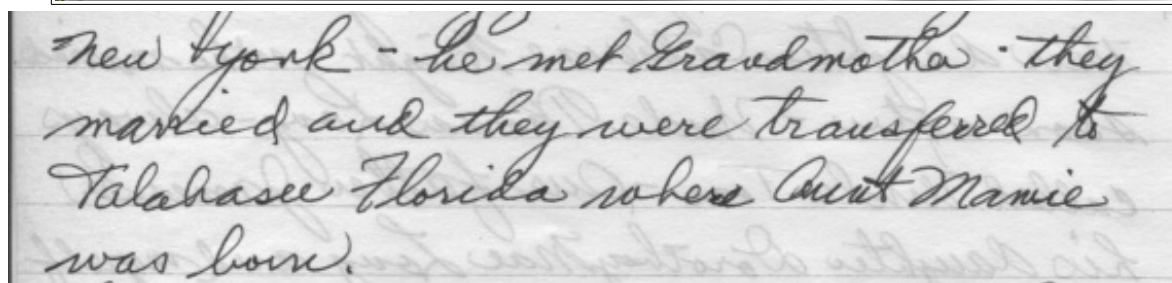 New York - he met Grandmother - they
married and they were transferred to
Talahasee Florida where Aunt Mamie
was born.